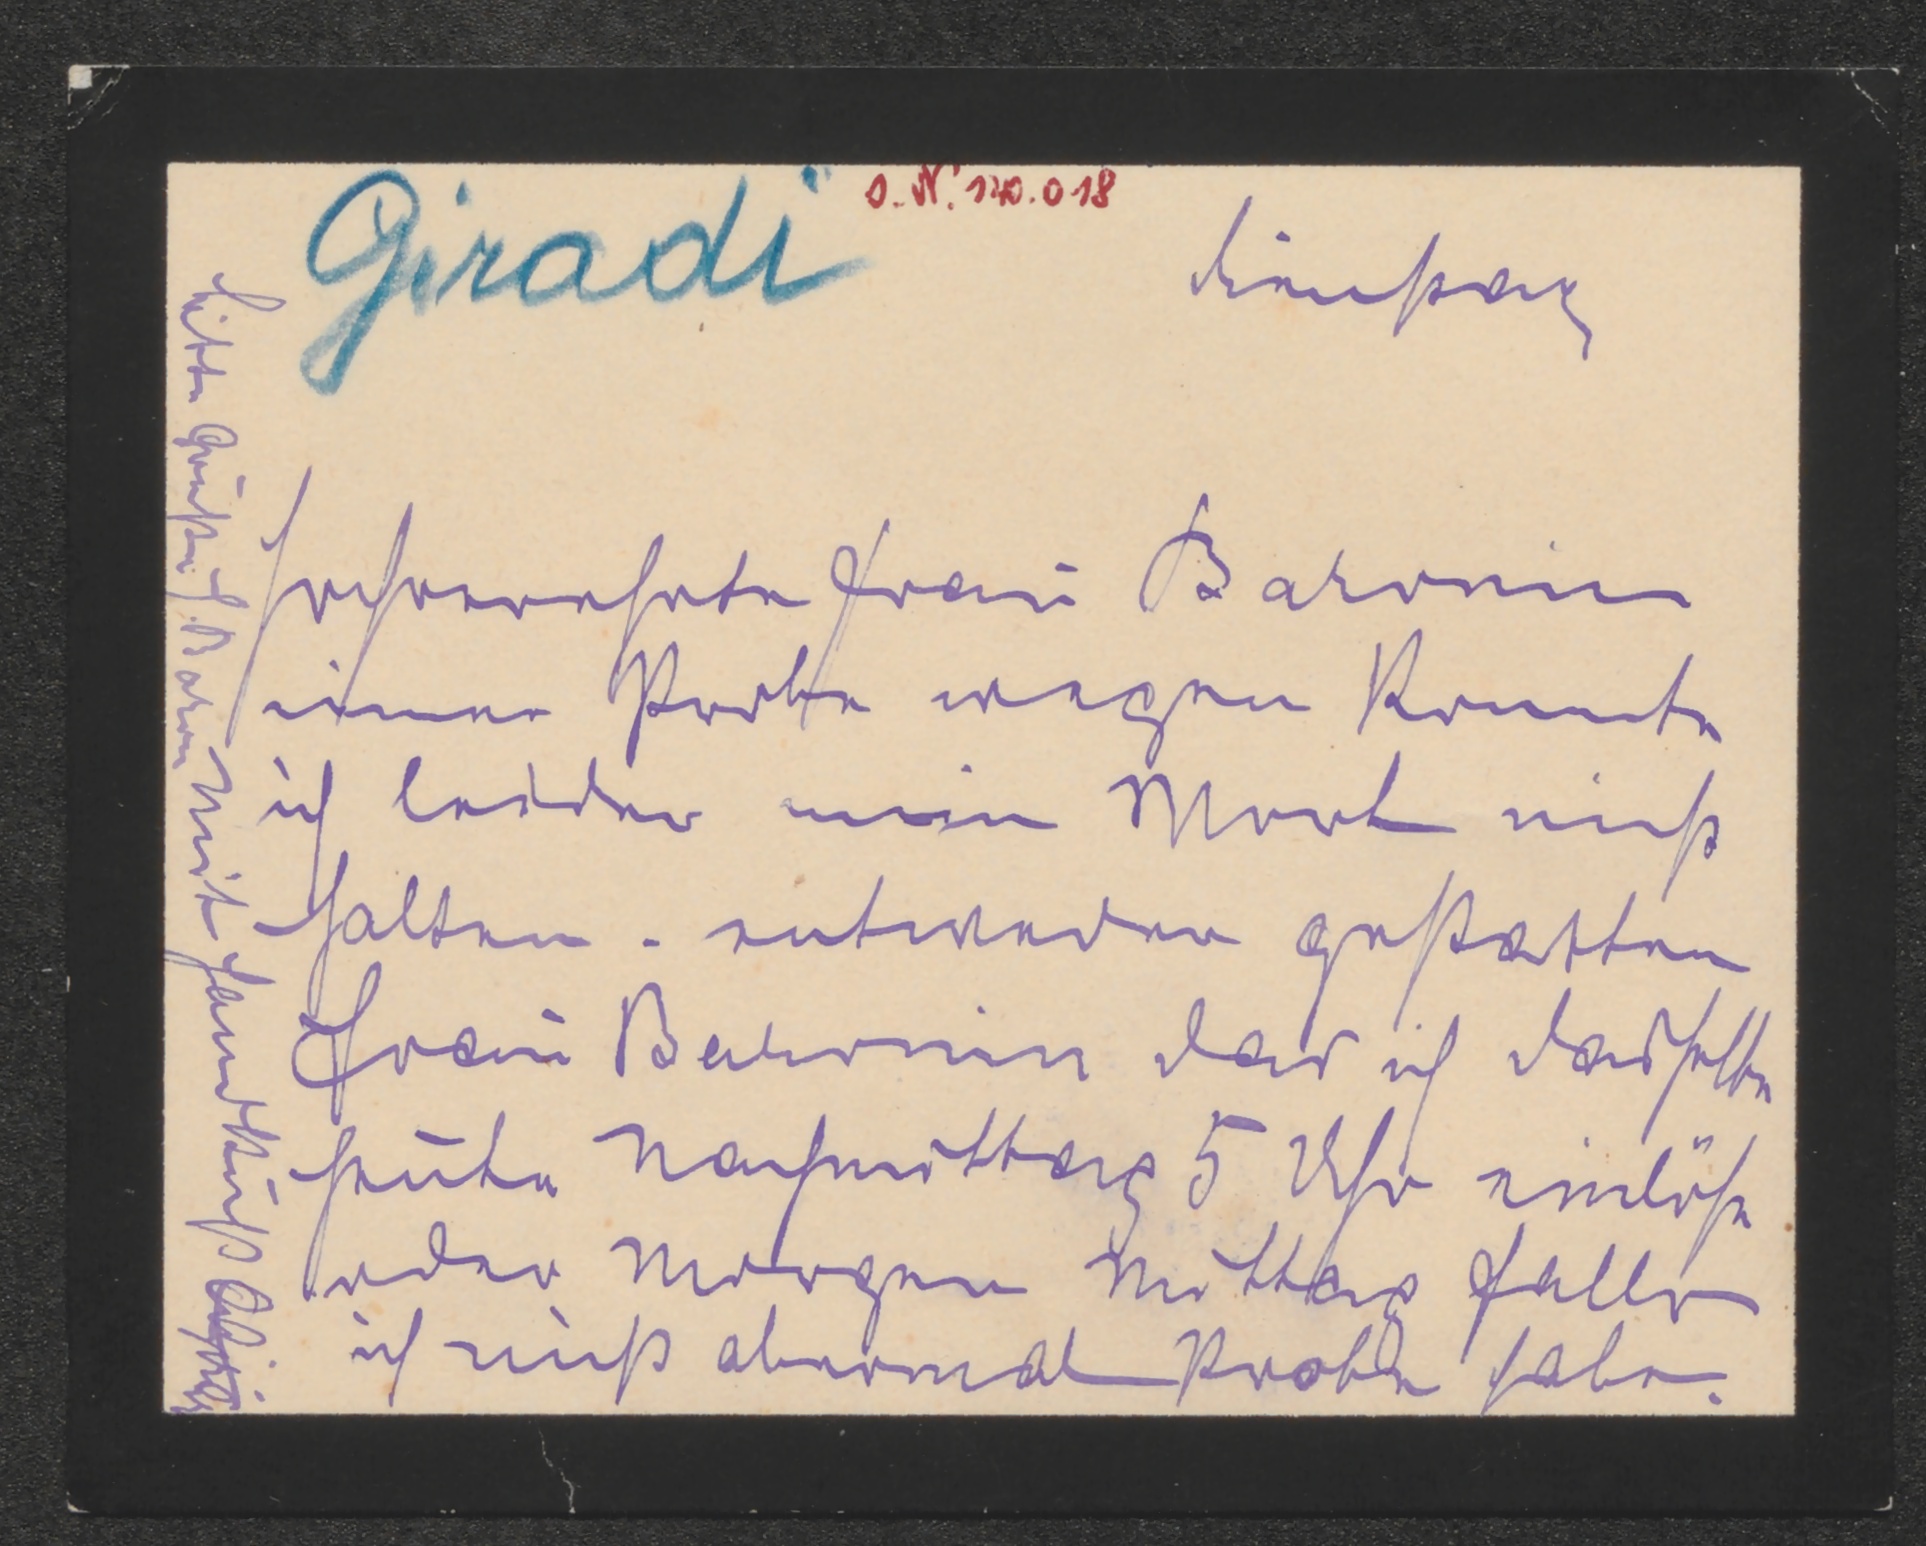 Giradi
I.N. 140.018
Dienstag
Hochverehrte Frau Baronin
einer Probe wegen konnte
ich leider mein Wort nicht
halten - entweder gestatten
Frau Baronin das ich dasselbe
heute Nachmittag 5 Uhr einlöse
oder Morgen Mittag falls
ich nicht abermal Probe habe.
bitte Grüße H. Baron Mit Handkuß